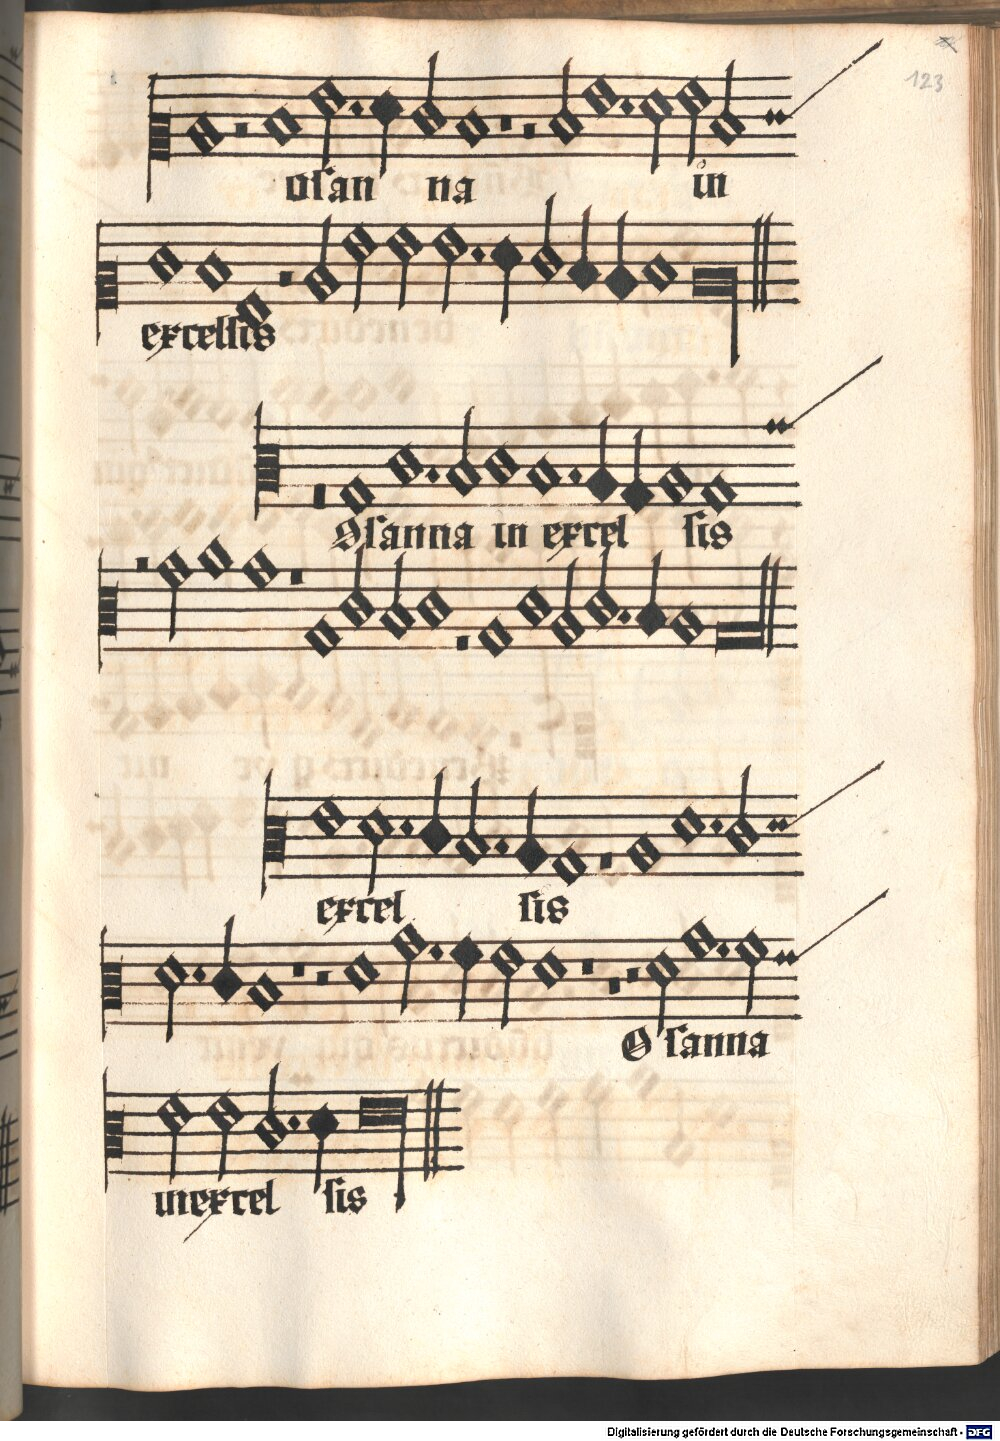 123
osan na in
excelsis
Osanna in excel sis
excel sis
Osanna
in excel sis
Digitalisierung gefördert durch die Deutsche Forschungsgemeinschaft - DFG